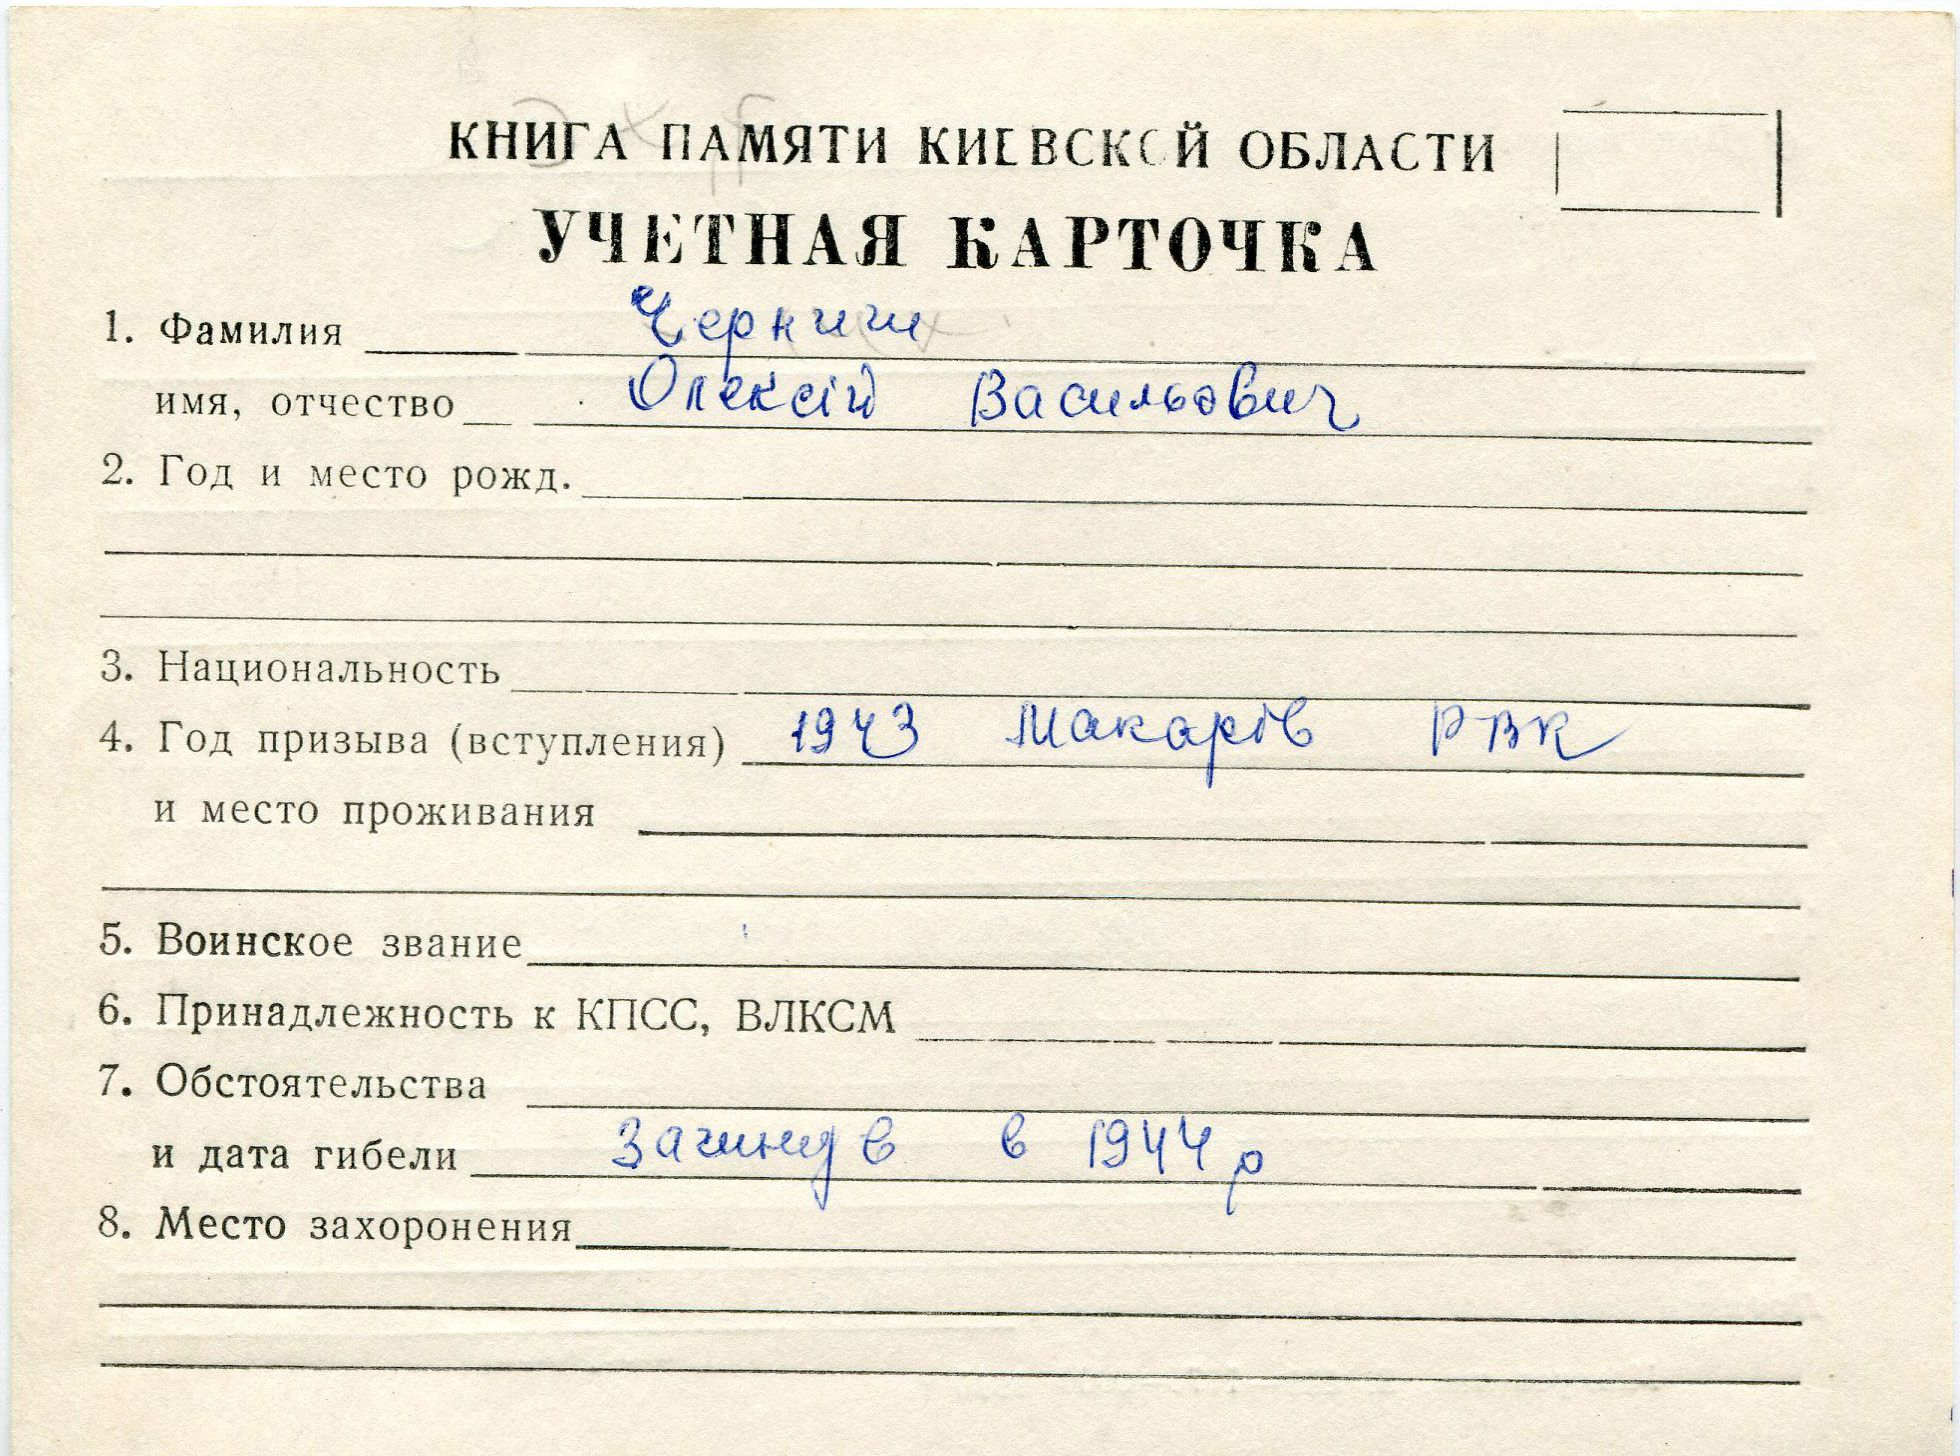 КНИГА ПАМЯТИ КИЕВСКОЙ ОБЛАСТИ
УЧЕТНАЯ КАРТОЧКА
1. Фамилия
имя, отчество Олексій Васильович
2. Год и место рожд.
3. Национальность
4. Год призыва (вступления) 1943 Макарів РВК
и место проживания
5. Воинское звание
6. Принадлежность к КПСС, ВЛКСМ
7. Обстоятельства
и дата гибели Загинув в 1944 р
8. Место захоронения